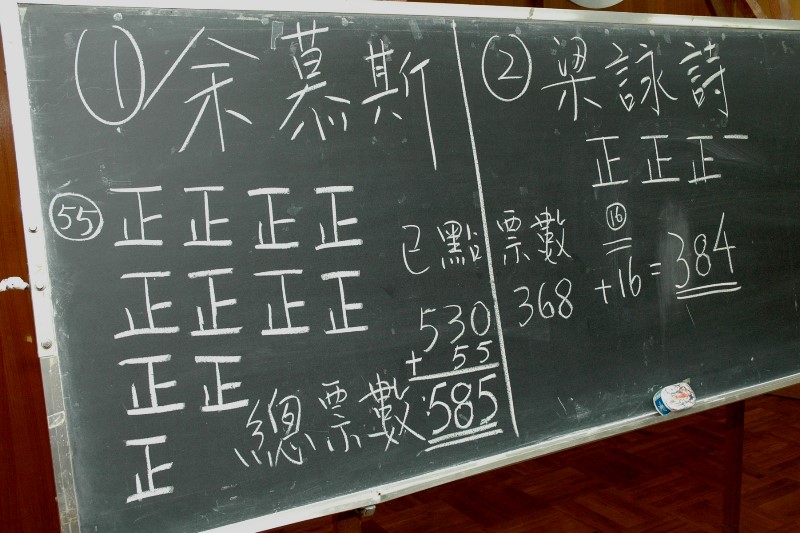 ① 余慕斯
② 梁詠詩
正正正一
⑯
55 正正正正
正正正正
正正
正
已點票數
368 +16 = 384
530
+ 55
總票數 585